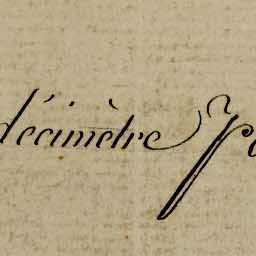 décimètre